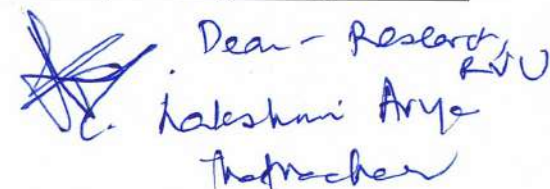 Dean - Research,
RVU
C. Lakshmi Arya
Thathachar